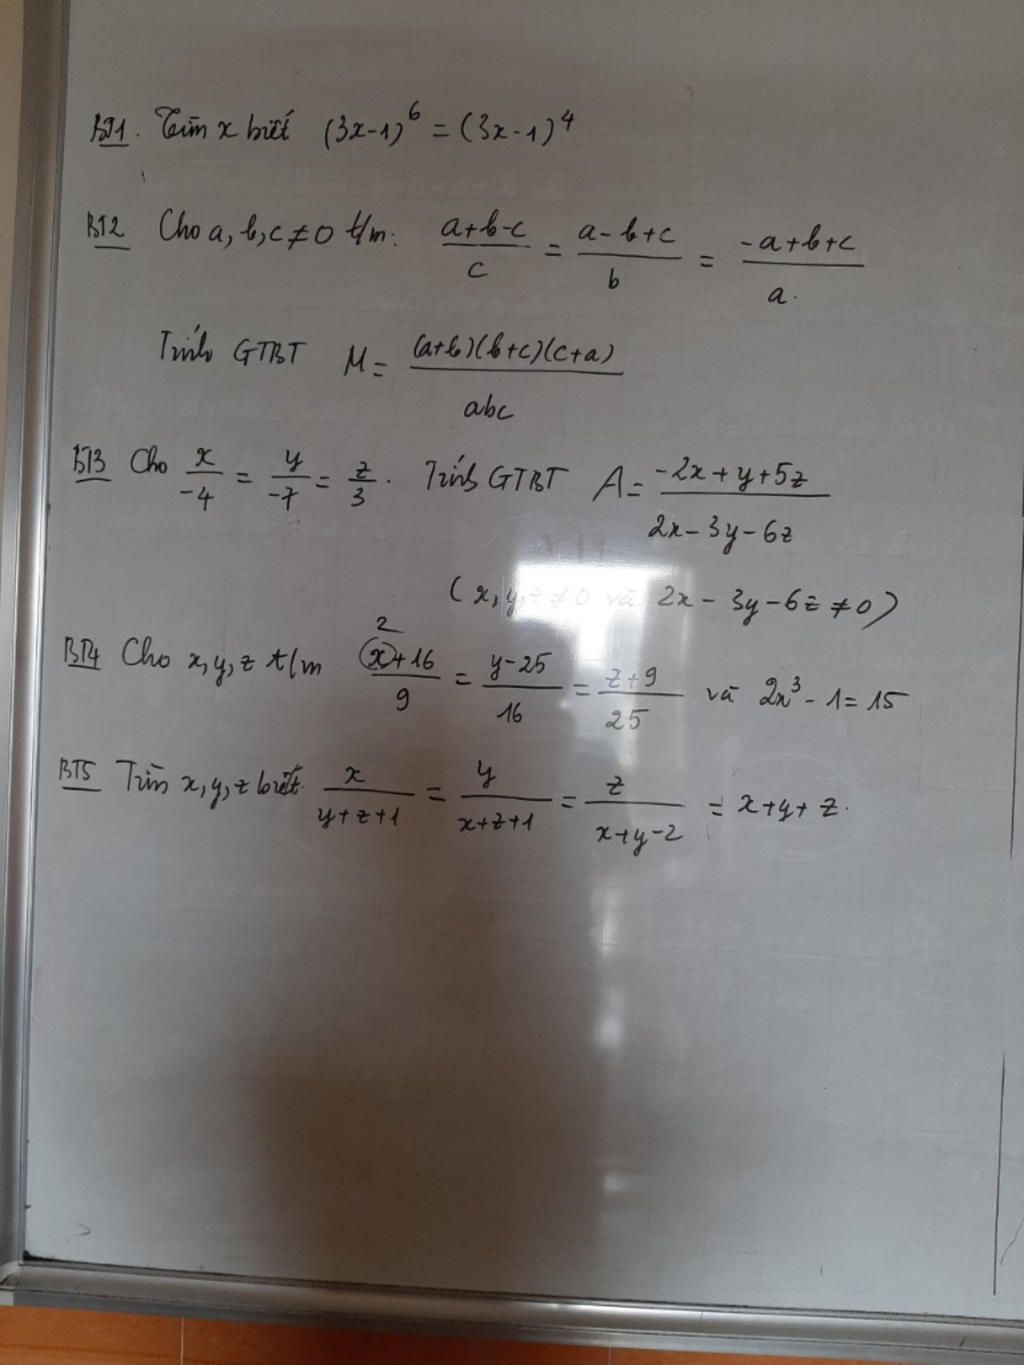 BT1. Tìm x biết (3x-1)^6 = (3x-1)^4
BT2 Cho a, b, c ≠ 0 t/m: (a+b-c)/c = (a-b+c)/b = (-a+b+c)/a.
Tính GTBT M = ((a+b)(b+c)(c+a))/(abc)
BT3 Cho x/(-4) = y/(-7) = z/3. Tính GTBT A = (-2x+y+5z)/(2x-3y-6z)
(x, y, z ≠ 0 và 2x - 3y - 6z ≠ 0)
2
BT4 Cho x, y, z t/m (x+16)/9 = (y-25)/16 = (z+9)/25 và 2x^3 - 1 = 15
BT5 Tìm x, y, z biết x/(y+z+1) = y/(x+z+1) = z/(x+y-2) = x+y+z.